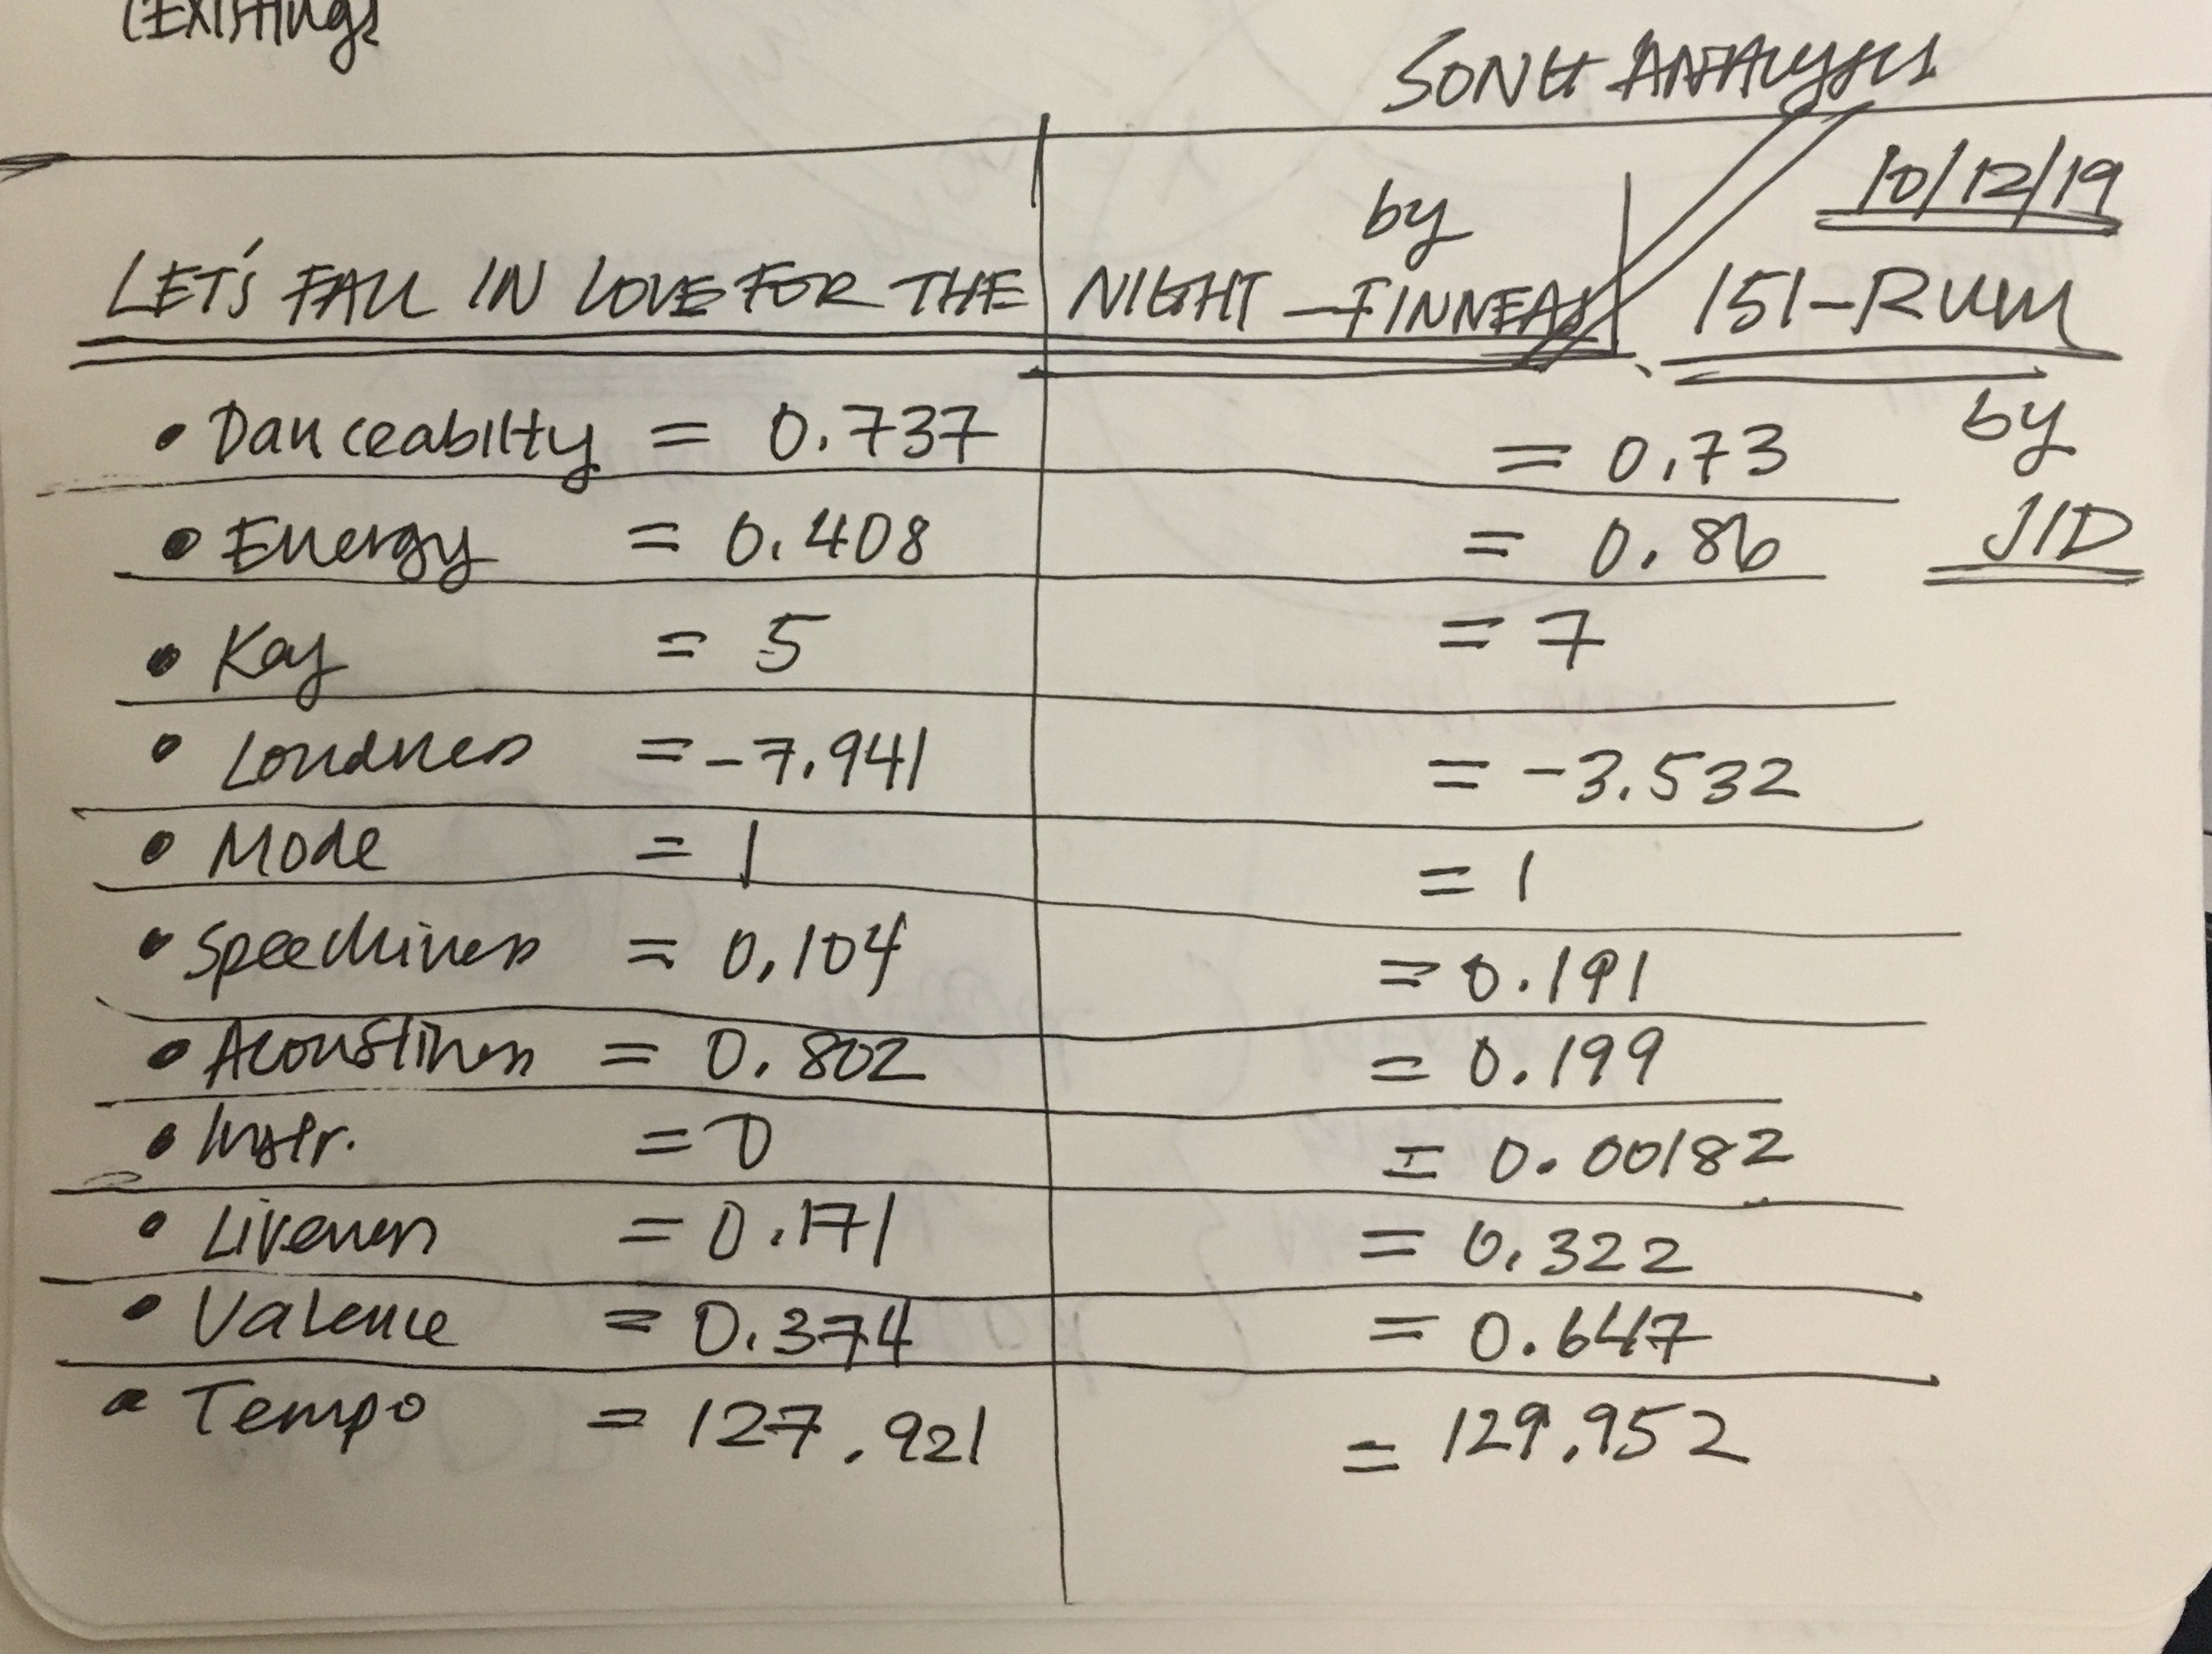 (Existing)
SONG ANALYSIS
10/12/19
LET'S FALL IN LOVE FOR THE NIGHT - FINNEAS
by
151-RUM
by
JID
• Danceabilty = 0.737 = 0.73
• Energy = 0.408 = 0.86
• Key = 5 = 7
• Loudness = -7.941 = -3.532
• Mode = 1 = 1
• Speechiness = 0.104 = 0.191
• Acoustiness = 0.802 = 0.199
• Instr. = 0 = 0.00182
• Liveness = 0.171 = 0.322
• Valence = 0.374 = 0.647
• Tempo = 127.921 = 129.952